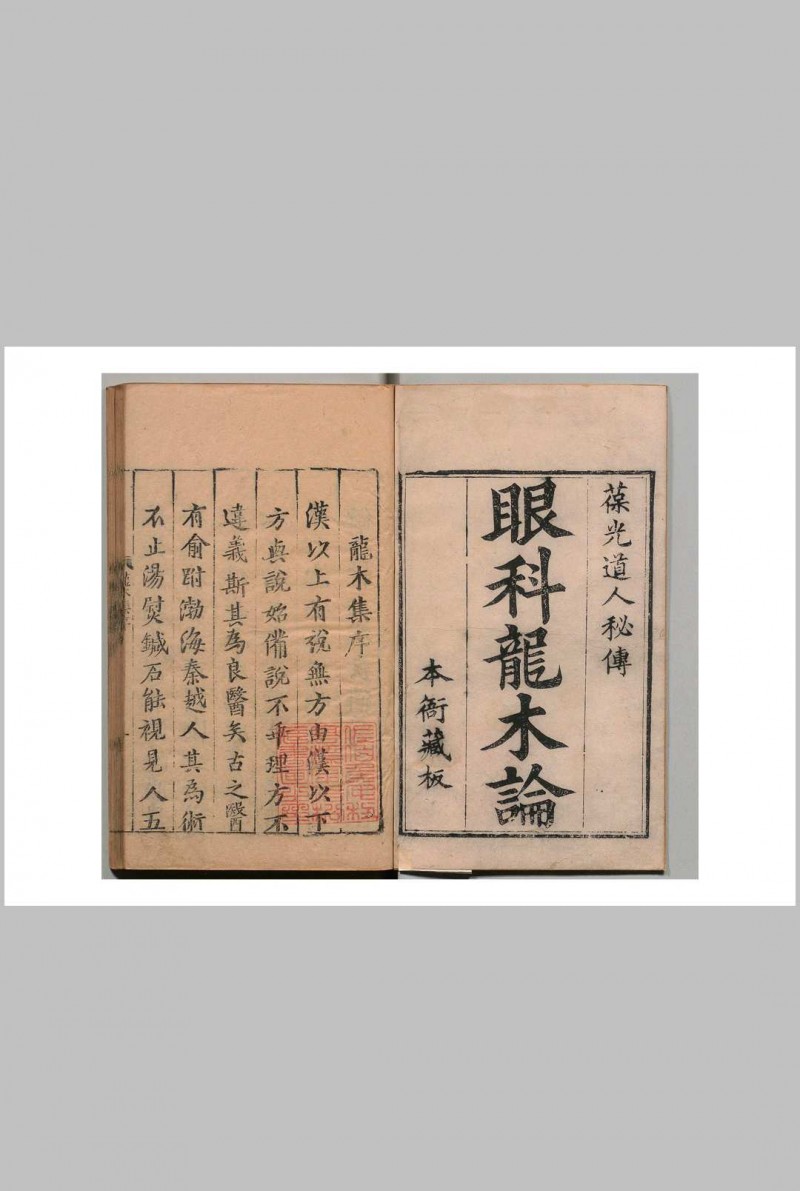 葆光道人秘傳
眼科龍木論
本衙藏板
龍木集序
漢以上有說無方由漢以下
方與說始備說不乖理方不
違義斯其為良醫矣古之醫
有俞跗渤海秦越人其為術
不止湯熨鍼石能視見人五